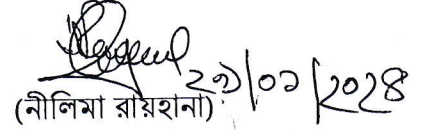 ২৯/০১/২০২৪
(নীলিমা রায়হানা)